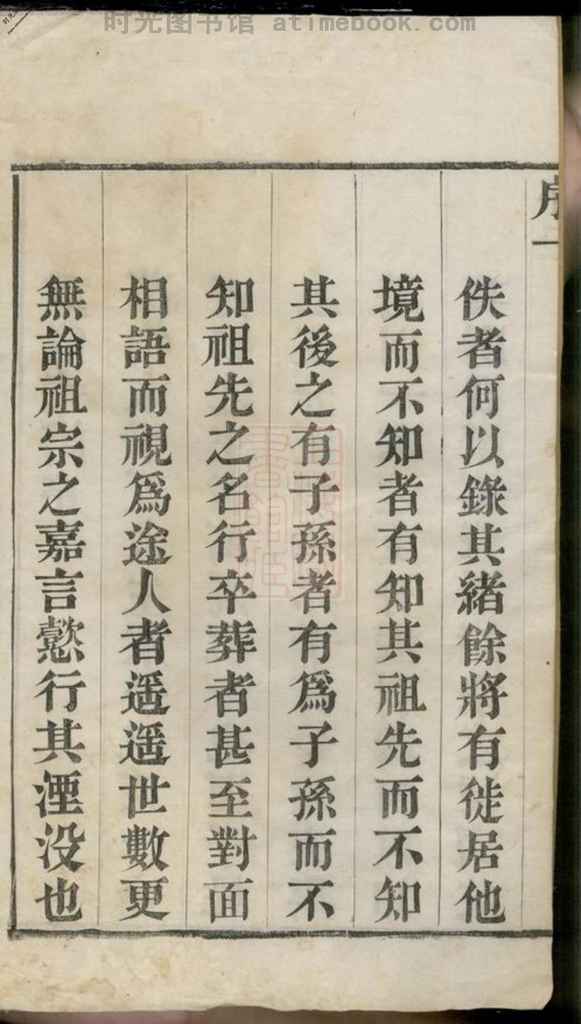 时光图书馆 atimebook.com
序一
佚者何以錄其緒餘將有徙居他
境而不知者有知其祖先而不知
其後之有子孫者有爲子孫而不
知祖先之名行卒葬者甚至對面
相語而視爲途人者遥遥世數更
無論祖宗之嘉言懿行其湮没也